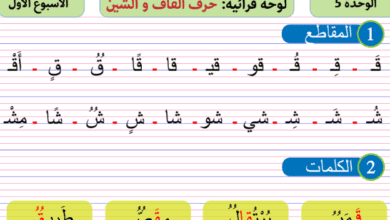 الوحدة 5
لوحة قرائية: حرف القاف و الشين
الأسبوع الأول
1 المقاطع
قَ - قِ - قُ - قو - قي - قا - قًا - قٌ - قٍ - أَقْ
شُ - شَ - شِ - شي - شو - شا - شٍ - شٌ - شًا - مِشْ
2 الكلمات
قَمَرٌ
بُرْتُقالٌ
مِقَصٌّ
طَريقٌ